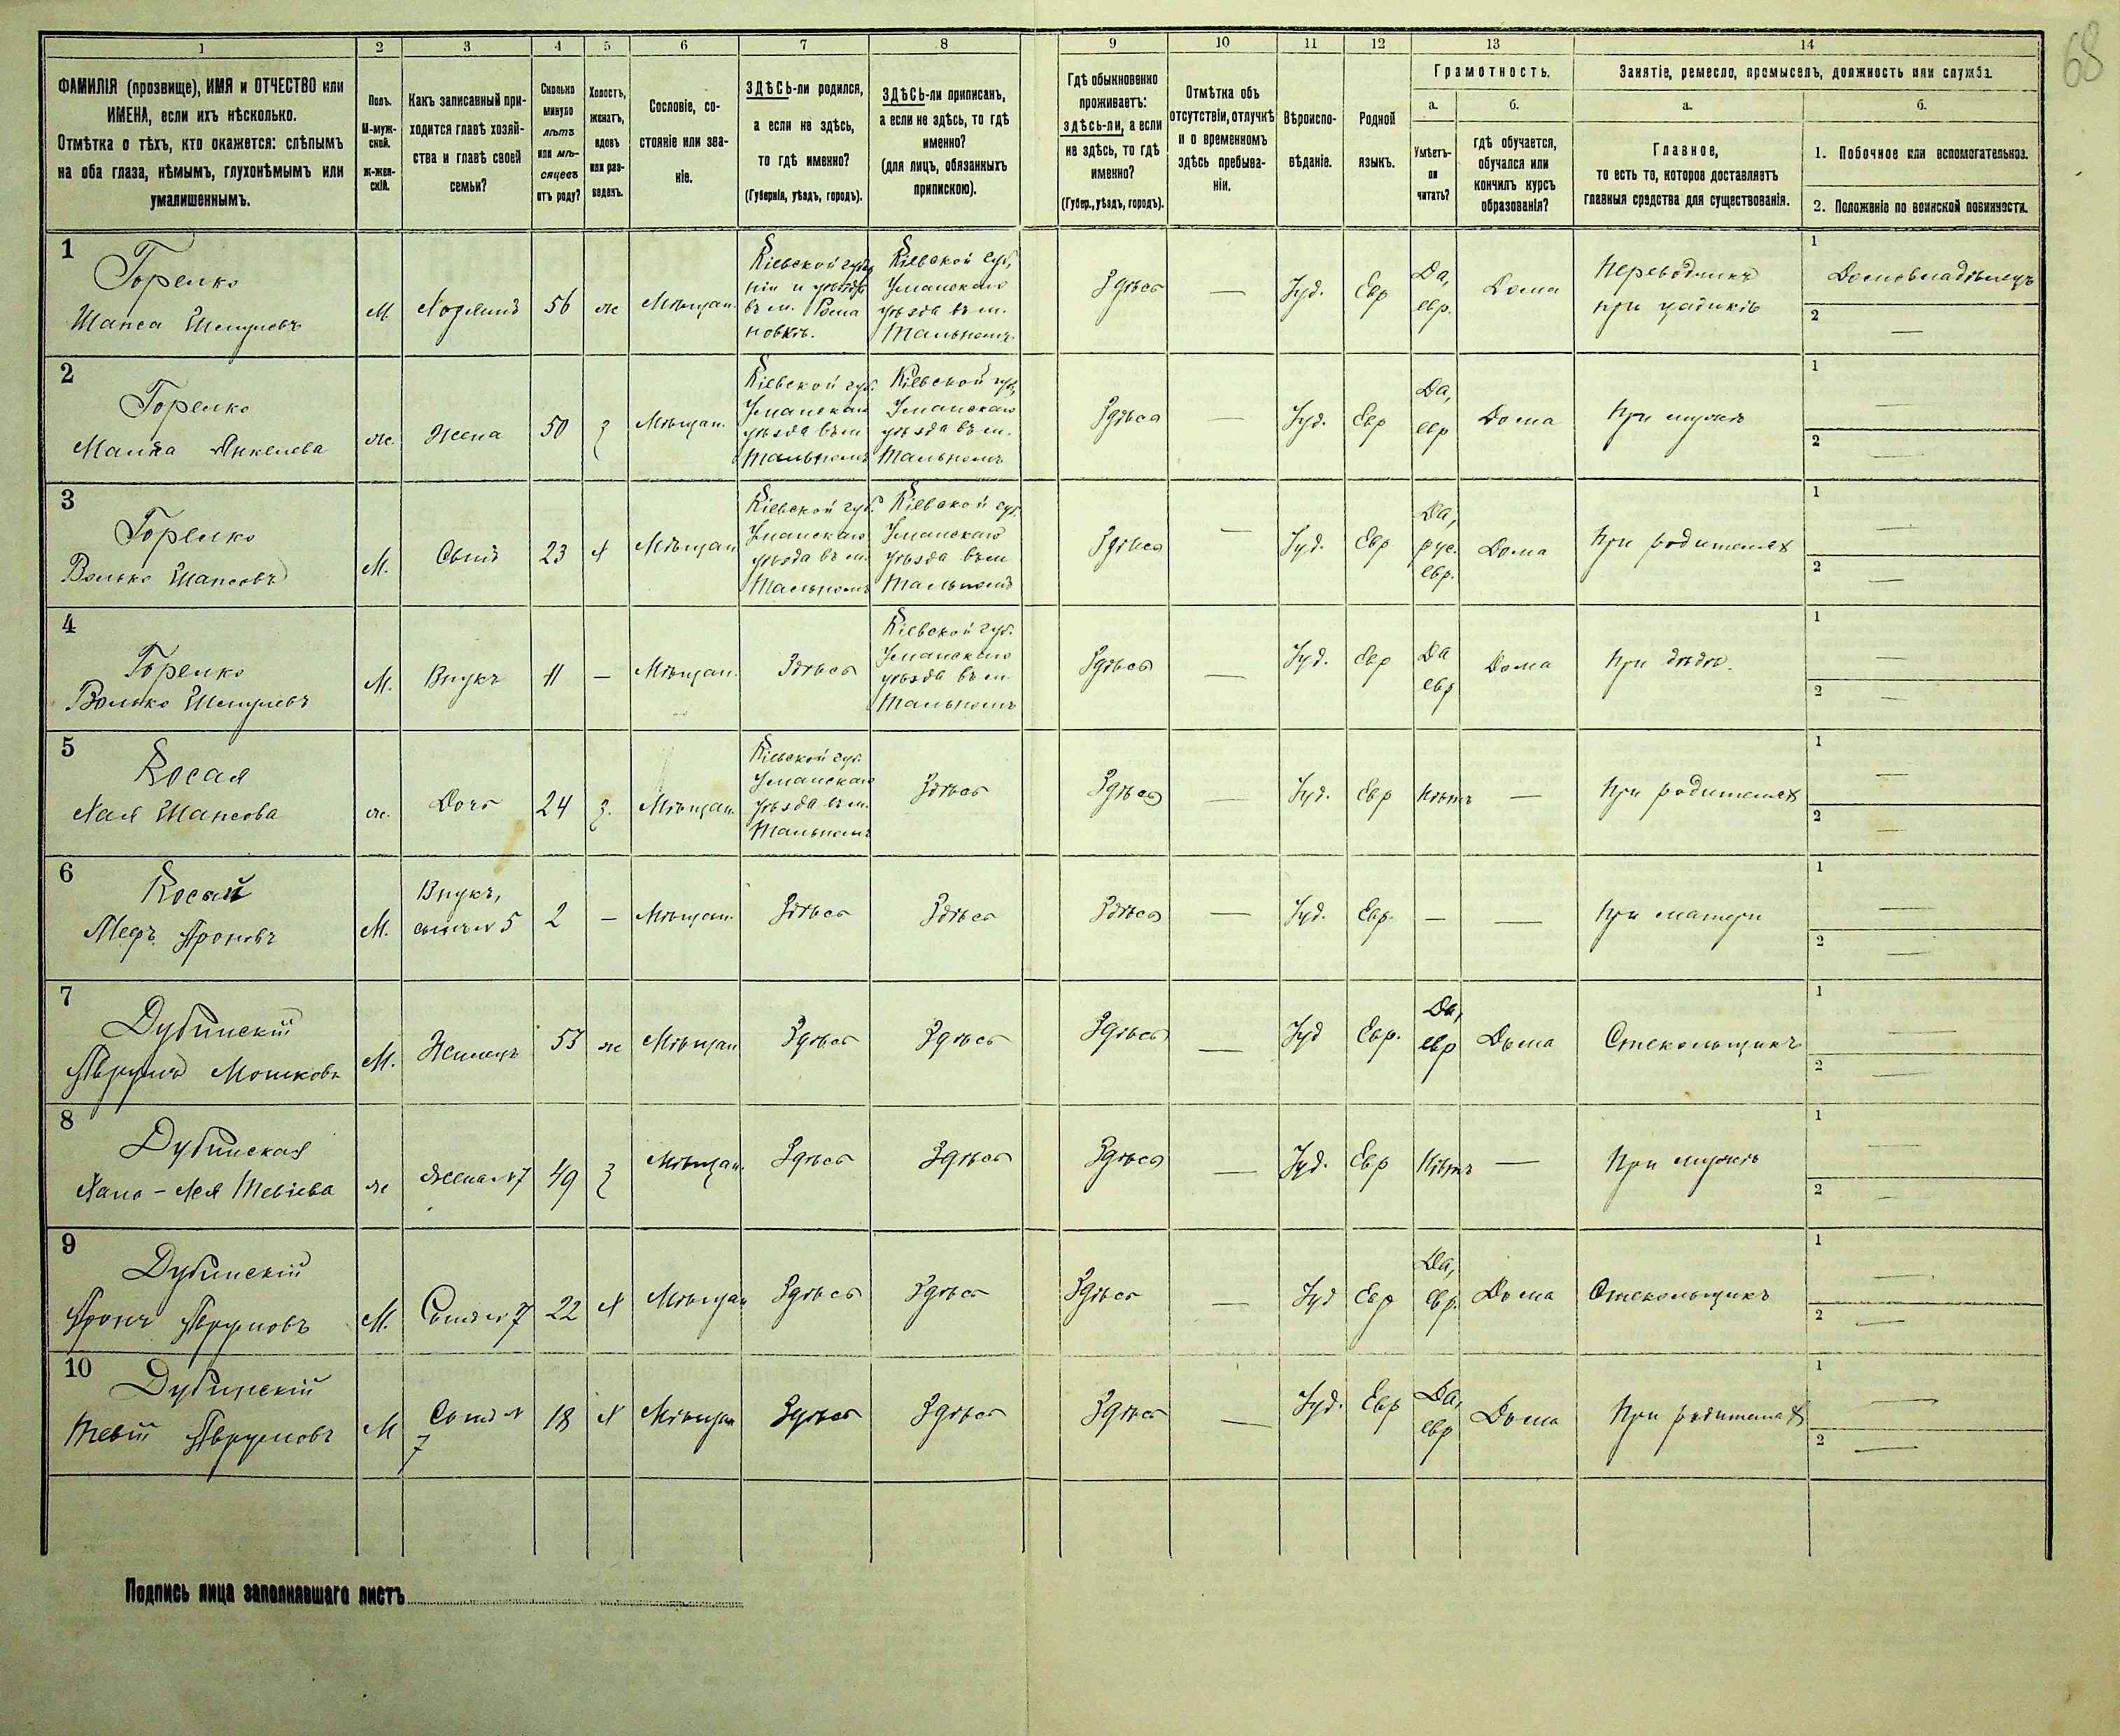 68
1
2
3
4
5
6
7
8
9
10
11
12
13
14
ФАМИЛІЯ (прозвище), ИМЯ и ОТЧЕСТВО или
ИМЕНА, если ихъ нѣсколько.
Отмѣтка о тѣхъ, кто окажется: слѣпымъ
на оба глаза, нѣмымъ, глухонѣмымъ или
умалишеннымъ.
Полъ.
М-муж-
ской.
ж-жен-
скій.
Какъ записанный при-
ходится главѣ хозяй-
ства и главѣ своей
семьи?
Сколько
минуло
лѣтъ
или мѣ-
сяцевъ
отъ роду?
Холостъ,
женатъ,
вдовъ
или раз-
веденъ.
Сословіе, со-
стояніе или зва-
ніе.
ЗДѢСЬ-ли родился,
а если не здѣсь,
то гдѣ именно?
(Губернія, уѣздъ, городъ).
ЗДѢСЬ-ли приписанъ,
а если не здѣсь, то гдѣ
именно?
(для лицъ, обязанныхъ
припискою).
Гдѣ обыкновенно
проживаетъ:
здѣсь-ли, а если
не здѣсь, то гдѣ
именно?
(Губер., уѣздъ, городъ).
Отмѣтка объ
отсутствіи, отлучкѣ
и о временномъ
здѣсь пребыва-
ніи.
Вѣроиспо-
вѣданіе.
Родной
языкъ.
Грамотность.
а.
Умѣетъ-
ли
читать?
б.
гдѣ обучается,
обучался или
кончилъ курсъ
образованія?
Занятіе, ремесло, промыселъ, должность или служба.
а.
Главное,
то есть то, которое доставляетъ
главныя средства для существованія.
б.
1. Побочное или вспомогательное.
2. Положеніе по воинской повинности.
1
Горелко
Шапса Шмулевъ
М.
Хозяинъ
56
ж
Мѣщан.
Кіевской губер
ніи и уѣзда
въ м. Рома
новкѣ.
Кіевской губ,
Уманскаго
уѣзда въ м.
Тальномъ.
Здѣсь
—
Іуд.
Евр
Да,
евр.
Дома
Переводчикъ
при цадикѣ
1
Домовладѣлецъ
2
—
2
Горелко
Малка Янкелева
ж.
Жена
50
з
Мѣщан.
Кіевской губ.
Уманскаго
уѣзда въ м
Тальномъ
Кіевской губ,
Уманскаго
уѣзда въ м.
Тальномъ
Здѣсь
—
Іуд.
Евр
Да,
евр
Дома
При мужѣ
1
—
2
—
3
Горелко
Волько Шапсовъ
М.
Сынъ
23
х
Мѣщан
Кіевской губ.
Уманскаго
уѣзда въ м.
Тальномъ
Кіевской губ.
Уманскаго
уѣзда въ м
Тальномъ
Здѣсь
—
Іуд.
Евр
Да,
рус.
евр.
Дома
При родителях
1
—
2
—
4
Горелко
Волько Шмулевъ
М.
Внукъ
11
—
Мѣщан.
Здѣсь
Кіевской губ.
Уманскаго
уѣзда въ м.
Тальномъ
Здѣсь
—
Іуд.
Евр
Да
евр
Дома
При дѣдѣ.
1
—
2
—
5
Косая
Хая Шапсова
ж.
Дочь
24
з.
Мѣщан.
Кіевской губ.
Уманскаго
уѣзда въ м.
Тальномъ
Здѣсь
Здѣсь
—
Іуд.
Евр
Нѣтъ
—
При родителях
1
—
2
—
6
Косой
Ароновъ
М.
Внукъ,
сынъ № 5
2
—
Мѣщан.
Здѣсь
Здѣсь
Здѣсь
—
Іуд.
Евр.
—
—
При матери
1
—
2
—
7
Дубинскій
Аврумъ Мошковъ
М.
Жилецъ
53
ж
Мѣщан
Здѣсь
Здѣсь
Здѣсь
—
Іуд
Евр.
Да,
евр
Дома
Стекольщикъ
1
—
2
—
8
Дубинская
Хана-Лея Тевіева
ж
Жена № 7
49
з
Мѣщан.
Здѣсь
Здѣсь
Здѣсь
—
Іуд.
Евр
Нѣтъ
—
При мужѣ
1
—
2
—
9
Дубинскій
Аронъ Аврумовъ
М.
Сынъ № 7
22
х
Мѣщан
Здѣсь
Здѣсь
Здѣсь
—
Іуд
Евр
Да,
Евр.
Дома
Стекольщикъ
1
—
2
—
10
Дубинскій
Тевій Аврумовъ
М
Сынъ №
7
18
х
Мѣщан
Здѣсь
Здѣсь
Здѣсь
—
Іуд.
Евр
Да,
евр
Дома
При родителях
1
—
2
—
Подпись лица заполнявшаго листъ